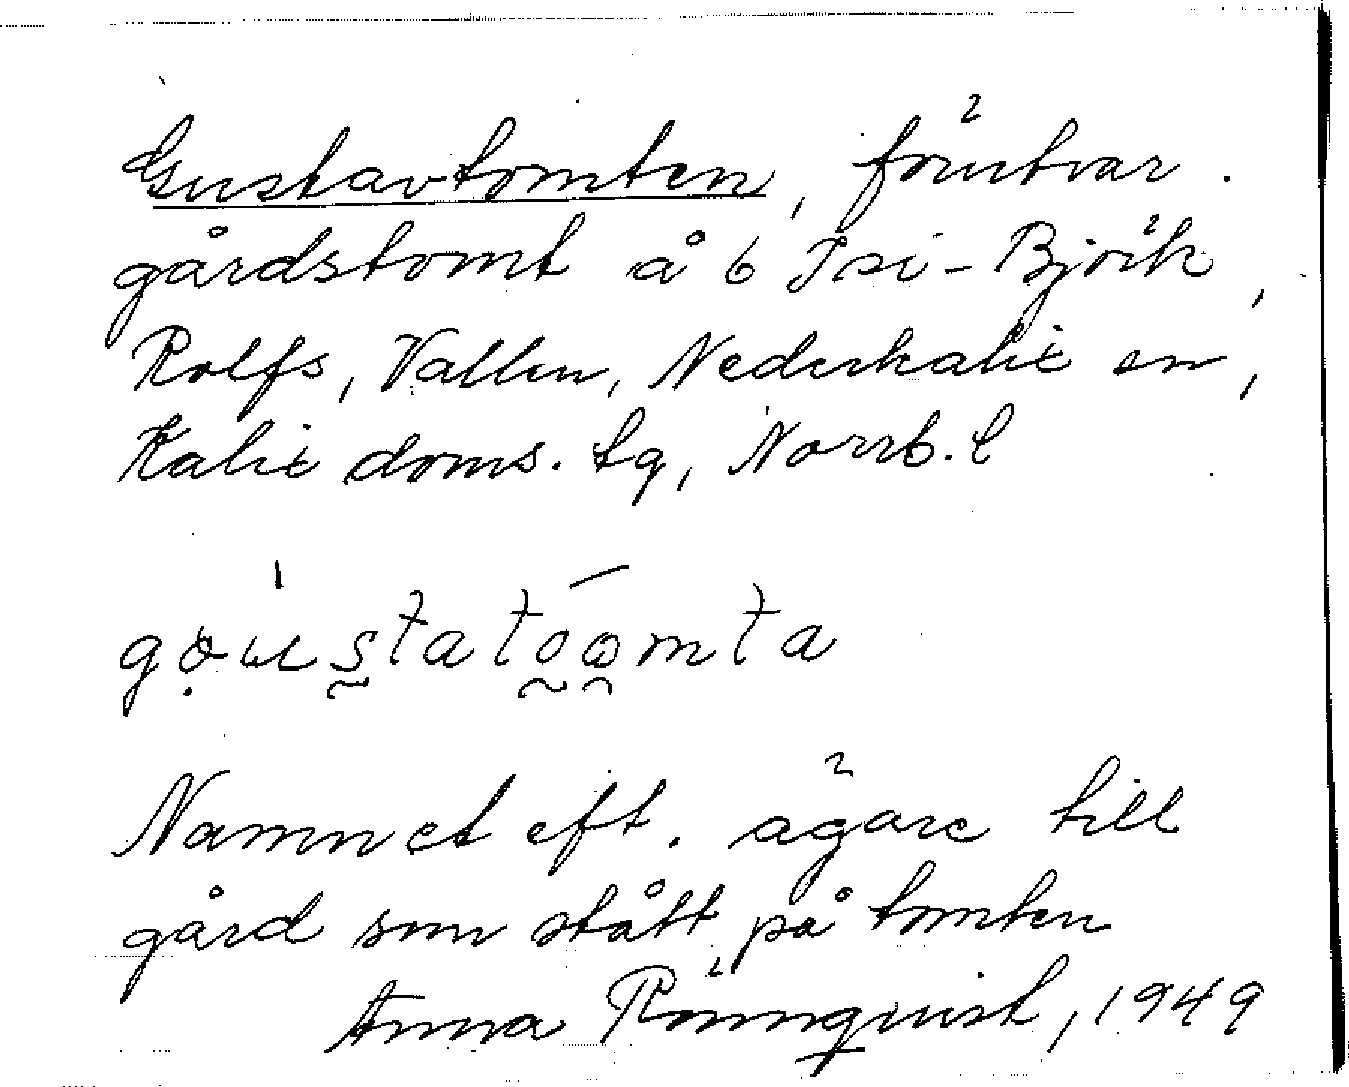 Gustavtomten, förutvar.
gårdstomt å 6 Isi-Björk,
Rolfs, Vallen, Nederkalix sn,
Kalix doms. tg, Norrb. l
Namnet eft. ägare till
gård som stått på tomten
Anna Rönnquist, 1949